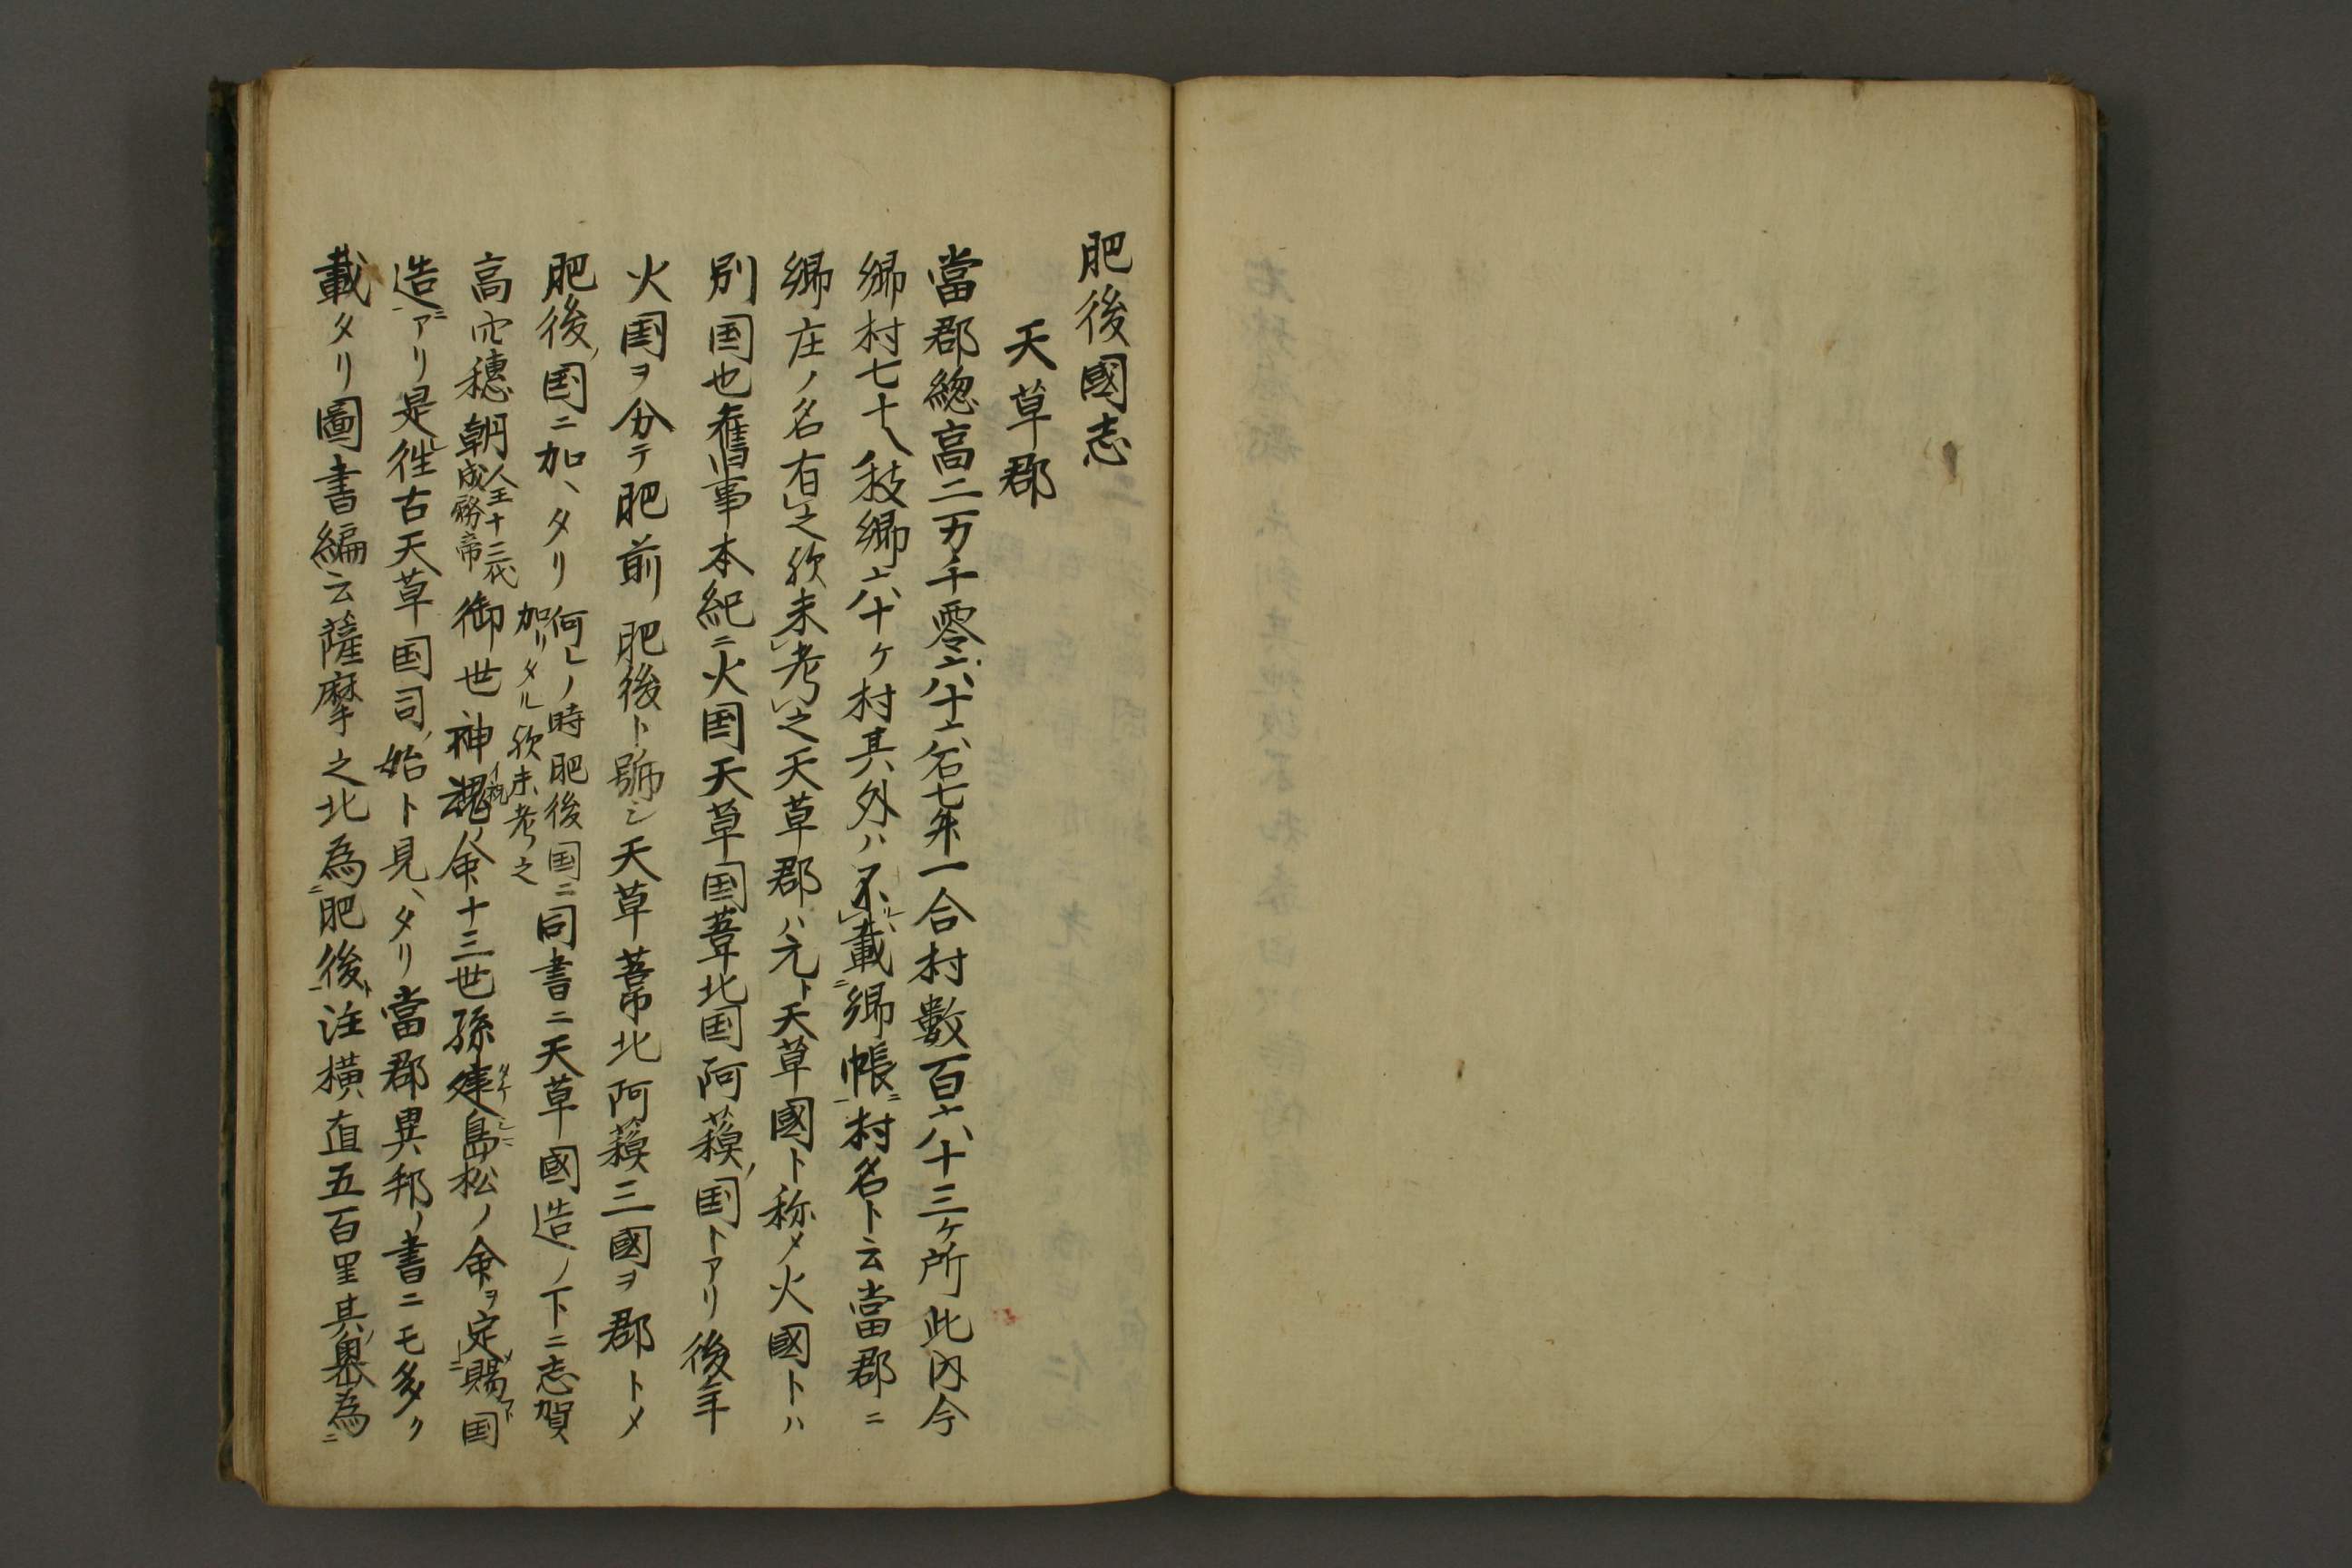 肥後國志
天草郡
當郡總高二万千零六十六石七斗一合村數百六十三ケ所此内今
郷村七十八枝郷六十ケ村其外ハ不載郷帳村名ト云當郡ニ
郷庄ノ名有之欤未考之天草郡ハ元ト天草國ト称メ火國トハ
別国也舊事本紀ニ火国天草国葦北国阿蘓国トアリ後年
火国ヲ分テ肥前肥後ト號シ天草葦北阿蘓三國ヲ郡トメ
肥後ノ国ニ加ヽタリ何レノ時肥後国ニ加リタル欤未考之同書ニ天草國造ノ下ニ志賀
高穴穗朝人王十三代成務帝御世神魂ノ命十三世孫建島松ノ命ヲ定賜国
造アリ是徃古天草国司ノ始ト見ヽタリ當郡異邦ノ書ニモ多ク
載タリ圖書編云薩摩之北為肥後注横直五百里其奥為